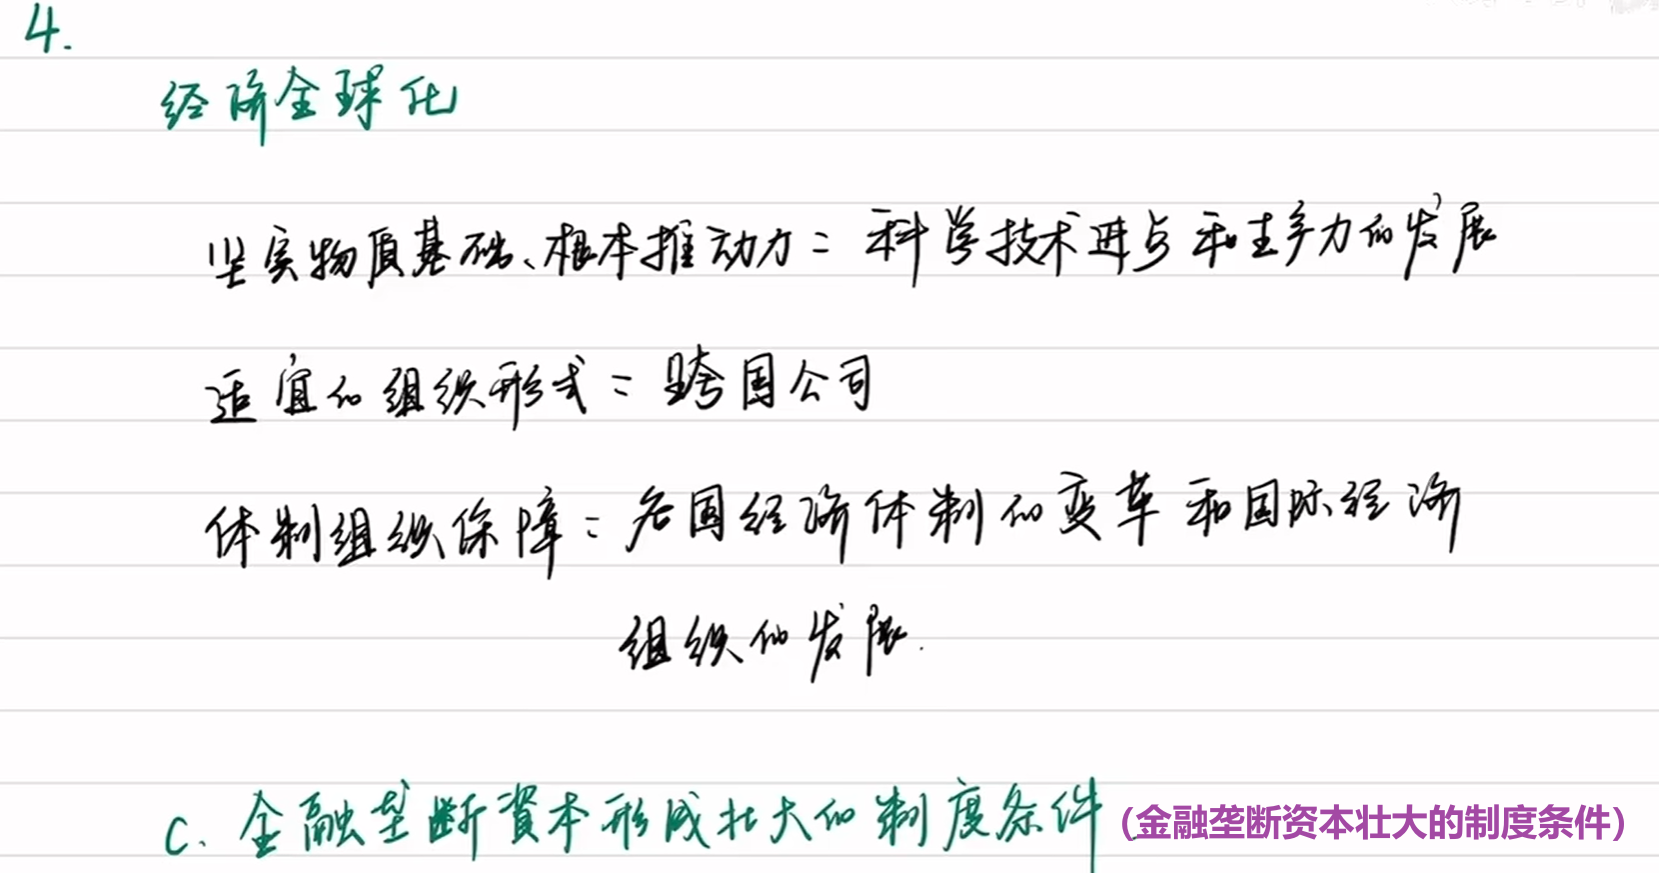 4.
经济全球化
坚实物质基础、根本推动力：科学技术进步和生产力的发展
适宜的组织形式：跨国公司
体制组织保障：各国经济体制的变革和国际经济
组织的发展.
C. 金融垄断资本形成壮大的制度条件 (金融垄断资本壮大的制度条件)